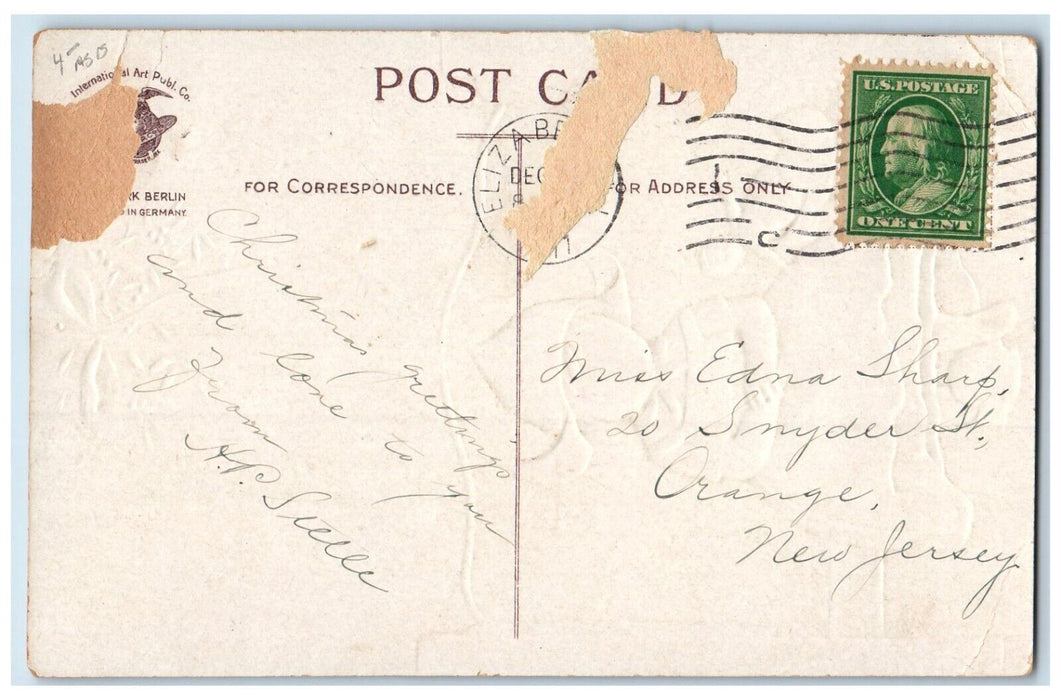 4- AS IS
International Art Publ. Co.
RK BERLIN
D IN GERMANY.
POST CARD
FOR CORRESPONDENCE.
FOR ADDRESS ONLY
ELIZABE
DEC
11
U.S. POSTAGE
ONE CENT
Christmas greetings
and love to you
from
H.P. Steelle
Miss Edna Sharp,
20 Snyder St,
Orange,
New Jersey